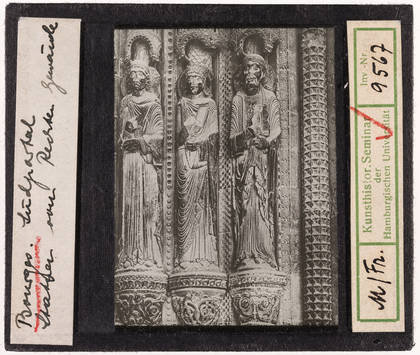 Bourges. Südportal
Statuen vom Rechten Gewände
Kunsthistor. Seminar
der
Hamburgischen Universität
Inv.-Nr
9567
M/Fr.